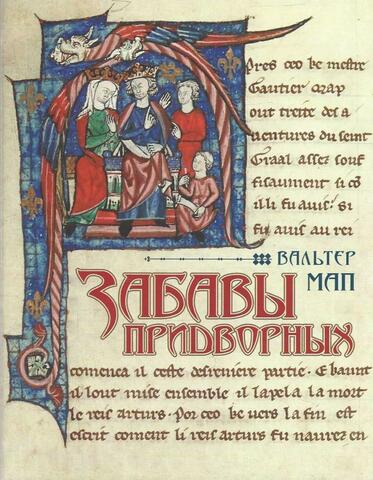 pres ceo be mestre
Gautier map
out treite des a
uentures du seint
Graal assez souf
fisaument si cō
il li fu auis. si
fu auis au rei
ВАЛЬТЕР
МАП
ЗАБАВЫ
ПРИДВОРНЫХ
comenca il ceste desreniere partie. E baunt
il lout mise ensemble il lapela la mort
le reis arturs. Por ceo be uers la fin est
escrit coment li reis arturs fu naurez en